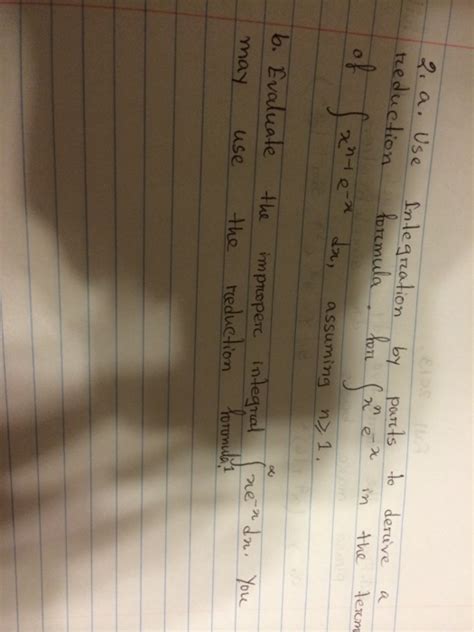 2. a. Use Integration by parts to derive a
reduction formula. for ∫ xⁿ e⁻ˣ in the term
of ∫ xⁿ⁻¹ e⁻ˣ dx, assuming n ≥ 1.
b. Evaluate the improper integral ∫₁^∞ xe⁻ˣ dx. You
may use the reduction formula.